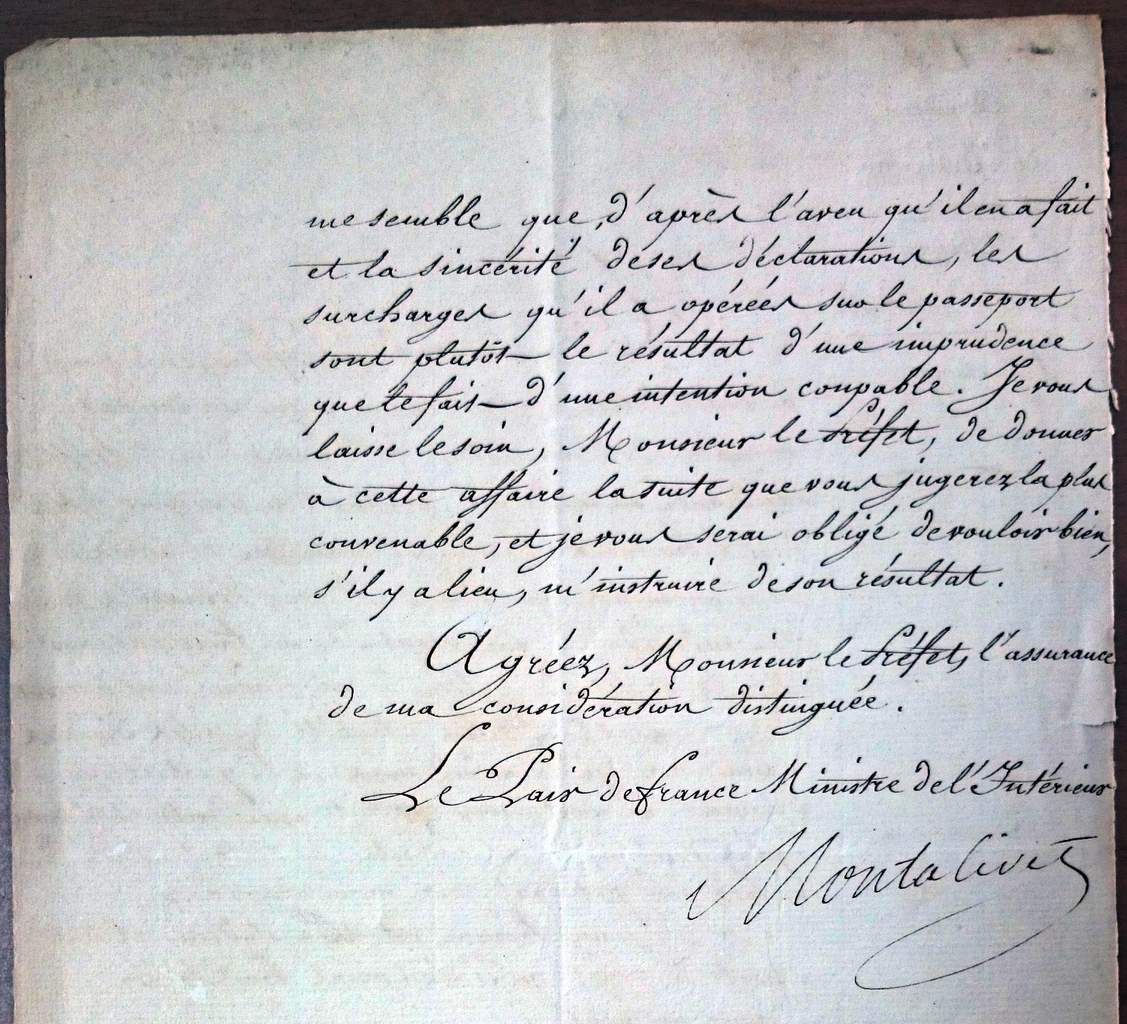 me semble que, d'après l'aveu qu'il en a fait
et la sincérité de ses déclarations, les
surcharges qu'il a opérées sur le passeport
sont plutôt le résultat d'une imprudence
que le fait d'une intention coupable. Je vous
laisse le soin, Monsieur le Préfet, de donner
à cette affaire la suite que vous jugerez la plus
convenable, et je vous serai obligé de vouloir bien,
s'il y a lieu, m'instruire de son résultat.
Agréez, Monsieur le Préfet, l'assurance
de ma considération distinguée.
Le Pair de france Ministre de l'Intérieur
Montalivet